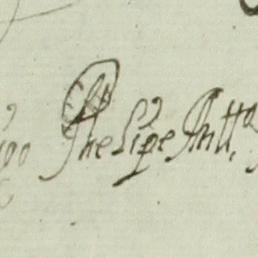 Phelipe Antt.º